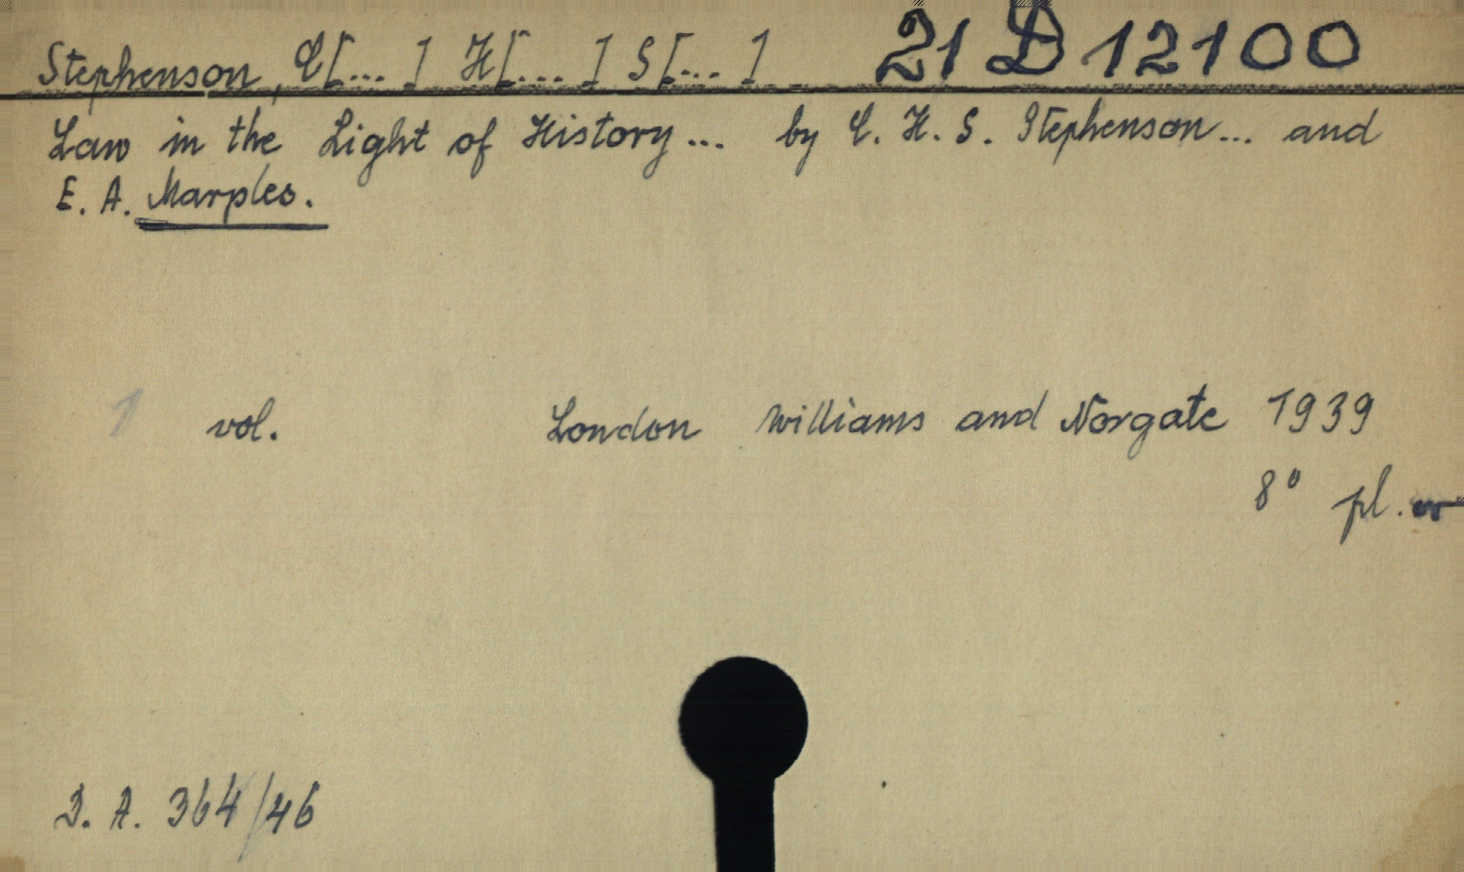 Stephenson, C[... ] H[... ] S[... ] 21 D 12100
Law in the Light of History... by C. H. S. Stephenson... and
E. A. Marples.
1 vol. London Williams and Norgate 1939
8° pl.
D. A. 364/46